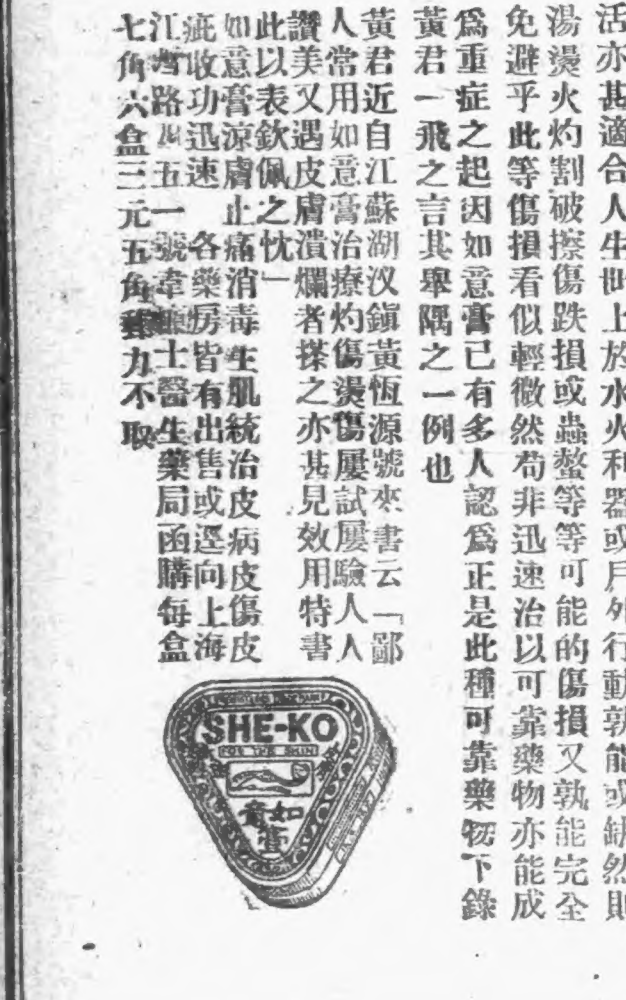 活亦甚適合人生世上於水火利器或戶外行動孰能或缺然則
湯燙火灼割破擦傷跌損或蟲螫等等可能的傷損又孰能完全
免避乎此等傷損看似輕微然苟非迅速治以可靠藥物亦能成
爲重症之起因如意膏已有多人認爲正是此種可靠藥物下錄
黃君一飛之言其舉隅之一例也
黃君近自江蘇湖汊鎭黃恆源號來書云「鄙
人常用如意膏治療灼傷燙傷屢試屢驗人人
讚美又遇皮膚潰爛者搽之亦甚見效用特書
此以表欽佩之忱」
如意膏涼膚止痛消毒生肌統治皮病皮傷皮
疵收功迅速 各藥房皆有出售或逕向上海
江西路四五一號韋廉士醫生藥局函購每盒
七角六盒三元五角郵力不取
SHE-KO
FOR THE SKIN
如意膏